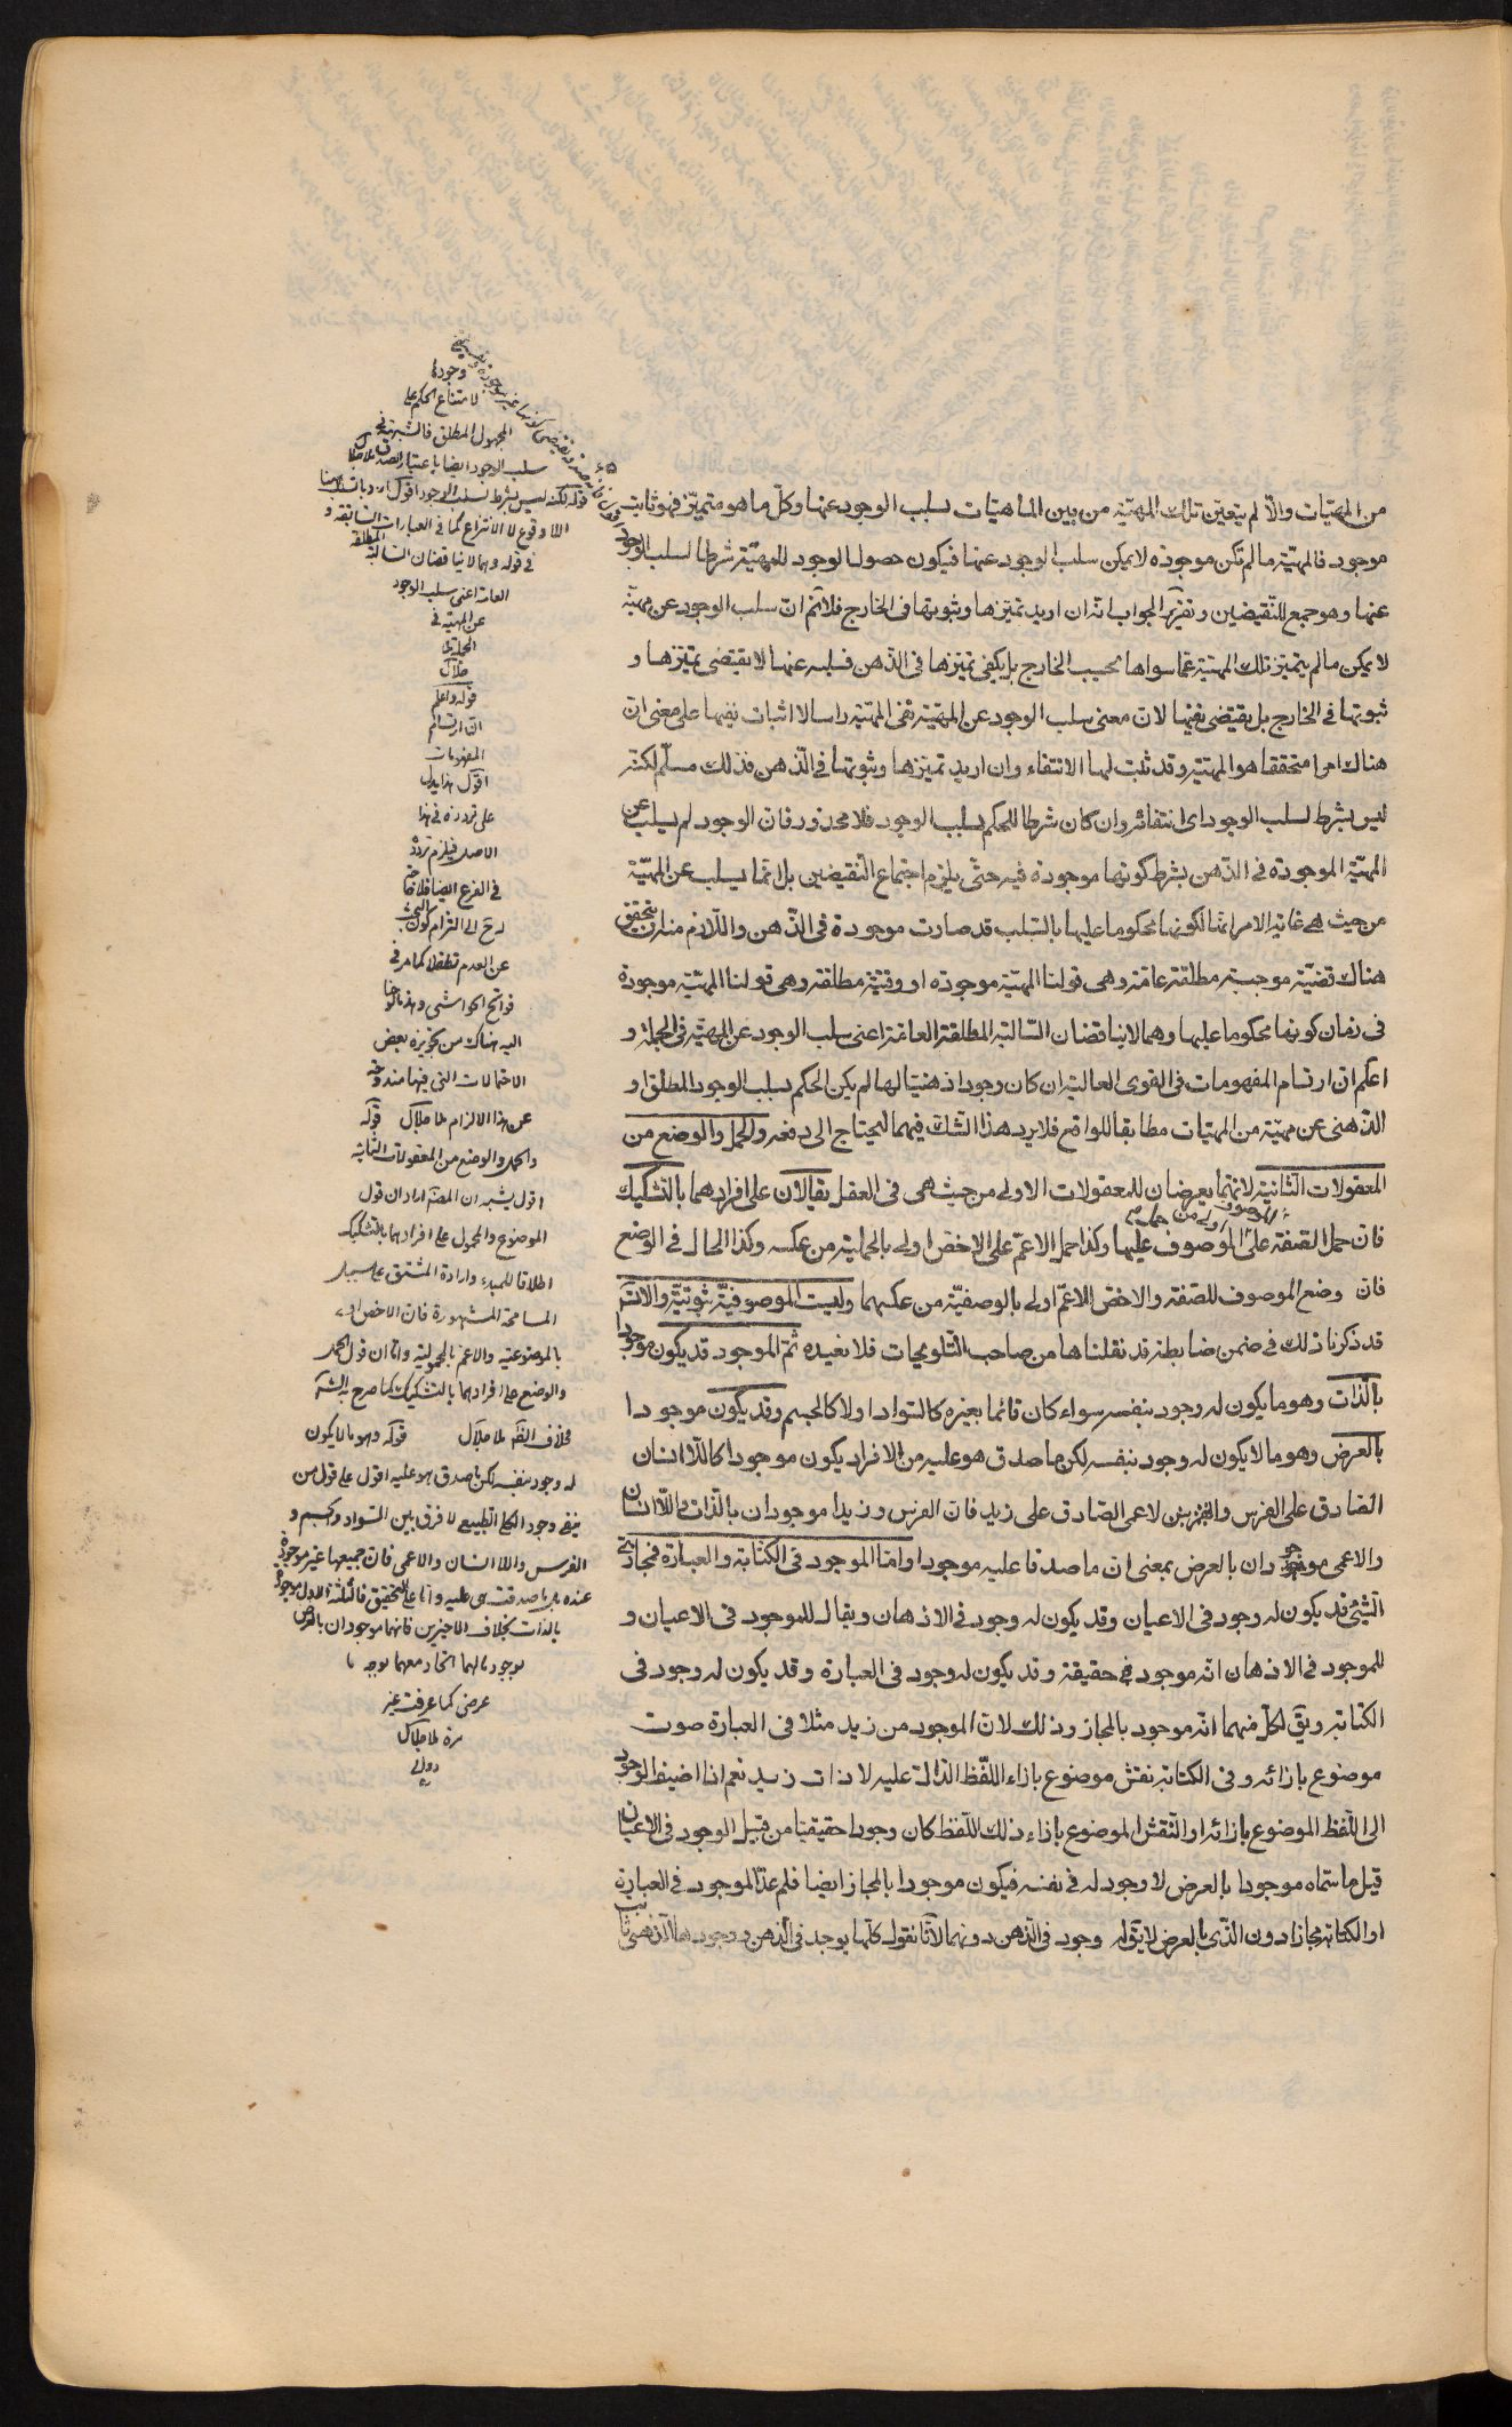 من المهيّات والّا لم يتعيّن تلك المهيّة من بين الماهيّات بسلب الوجود عنها وكلّ ما هو متميّز فهو ثابت
موجود فالمهيّة ما لم تكن موجودة لا يمكن سلب الوجود عنها فيكون حصول الوجود للمهيّة شرطا لسلب الوجود
عنها وهو جمع للنّقيضين وتقرير الجواب انّه ان اريد تميّزها وثبوتها فى الخارج فلا نم انّ سلب الوجود عن مهيّة
لا يمكن ما لم يتميّز تلك المهيّة عمّا سواها بحسب الخارج بل يكفى تميّزها فى الذّهن فسلبه عنها لا يقتضى تميّزها و
ثبوتها فى الخارج بل يقتضى نفيها لانّ معنى سلب الوجود عن المهيّة نفى المهيّة راسا لا اثبات نفيها على معنى انّ
هناك امرا متحققا هو المهيّة وقد ثبت لها الانتفاء وان اريد تميّزها وثبوتها فى الذّهن فذلك مسلّم لكنّه
ليس بشرط لسلب الوجود اى انتفائه وان كان شرطا للحكم بسلب الوجود فلا محذور فانّ الوجود لم يسلب عن
المهيّة الموجودة فى الذّهن بشرط كونها موجودة فيه حتّى يلزم اجتماع النّقيضين بل انّما يسلب عن المهيّة
من حيث هى غاية الامر انّها لكونها محكوما عليها بالسّلب قد صارت موجودة فى الذّهن واللّازم منه ان يتحقق
هناك قضيّة موجبة مطلقة عامّة وهى قولنا المهيّة موجودة او وقتيّة مطلقة وهى قولنا المهيّة موجودة
فى زمان كونها محكوما عليها وهما لا يناقضان السّالبة المطلقة العامّة اعنى سلب الوجود عن المهيّة فى الجملة و
اعلم ان ارتسام المفهومات فى القوى العالية ان كان وجودا ذهنيّا لها لم يكن الحكم بسلب الوجود المطلق او
الذّهنى عن مهيّة من المهيّات مطابقا للواقع فلا يرد هذا الشّك فيهما ليحتاج الى دفعه والحمل والوضع من
المعقولات الثّانية لانّهما يعرضان للمعقولات الاولى من حيث هى فى العقل يقالان على افرادهما بالتّشكيك
فانّ حمل الصّفة على الموصوف اولى من حمل الموصوف عليها وكذا حمل الاعمّ على الاخصّ اولى بالحمليّة من عكسه وكذا الحال فى الوضع
فان وضع الموصوف للصّفة والاخصّ للاعمّ اولى بالوضعيّة من عكسهما وليست الموصوفيّة ثبوتيّة والّا تسلسل
قد ذكرنا ذلك فى ضمن ضابطة قد نقلناها من صاحب التّلويحات فلا نعيده ثمّ الموجود قد يكون موجودا
بالّذات وهو ما يكون له وجود بنفسه سواء كان قائما بغيره كالسّواد او لا كالجسم وقد يكون موجودا
بالعرض وهو ما لا يكون له وجود بنفسه لكن ما صدق هو عليه من الافراد يكون موجودا كاللّا انسان
الصّادق على الفرس والاعمى الصّادق على زيد فانّ الفرس وزيدا موجودان بالذّات واللّا انسان
والاعمى موجودان بالعرض بمعنى ان ما صدقا عليه موجود وامّا الموجود فى الكتابة والعبارة فمجازىّ
الشّىء قد يكون له وجود فى الاعيان وقد يكون له وجود فى الاذهان ويقال للموجود فى الاعيان و
للموجود فى الاذهان انّه موجود حقيقة وقد يكون له وجود فى العبارة وقد يكون له وجود فى
الكتابة ويق لكلّ منهما انّه موجود بالمجاز وذلك لانّ الموجود من زيد مثلا فى العبارة صوت
موضوع بازائه وفى الكتابة نقش موضوع بازاء اللّفظ الدّالّ عليه لا ذات زيد نعم اذا اضيف الوجود
الى اللّفظ الموضوع بازائه او النّقش الموضوع بازاء ذلك اللّفظ كان وجودا حقيقيّا من قبيل الوجود فى الاعيان
قيل ما سمّاه موجودا بالعرض لا وجود له فى نفسه فيكون موجودا بالمجاز ايضا فلم عدّ الموجود فى العبارة
او الكتابة مجازا دون الّذى بالعرض لا يق له وجود فى الذّهن دونهما لانّا نقول كلّها يوجد فى الذّهن
وجودها
لامتناع الحكم على
المجهول المطلق فالشبهة فى
سلب الوجود ايضا باعتبار
قوله لكنه ليس بشرط لسلب الوجود اقول اراد بالسلب ههنا
اللا وقوع لا الانتزاع كما فى العبارات السابقة و
فى قوله وهما لا يناقضان السالبة المطلقة
العامة اعنى سلب الوجود
عن المهية فى
الجملة
قوله واعلم
ان ارتسام
المفهومات
اقول هذا يدل
على تردده فى هذا
الاصل فيلزم تردده
فى الفرع ايضا فلا
عن العدم
اليه هناك من تجويزه بعض
الاحتمالات التى فيها مندوحة
عن هذا الالزام ملا جلال قوله
والحمل والوضع من المعقولات الثانية
اقول يشبه ان المصنف اراد ان قول
الموضوع والمحمول على افرادهما بالتشكيك
اطلاقا للمبدء وارادة المشتق على سبيل
المسامحة المشهورة فان الاخص اولى
بالموضوعية والاعم بالمحمولية واما ان قول الحمل
والوضع على افرادهما بالتشكيك كما صرح به الش
فخلاف الظ ملا جلال قوله وهو ما لا يكون
له وجود بنفسه لكن ما صدق هو عليه اقول على قول من
ينفى وجود الكلى الطبيعى لا فرق بين السواد والجسم و
الفرس واللا انسان والاعمى فان جميعها غير موجودة
عنده بل ما صدقت هى عليه واما على التحقيق فالثلثة الاول موجودة
بالذات بخلاف الاخيرين فانهما موجودان بالعرض
بوجود ما لهما اتحاد معهما بوجه ما
عرضى كما عرفت غير
مرة ملا جلال
دوانى